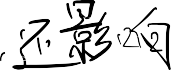 还影响